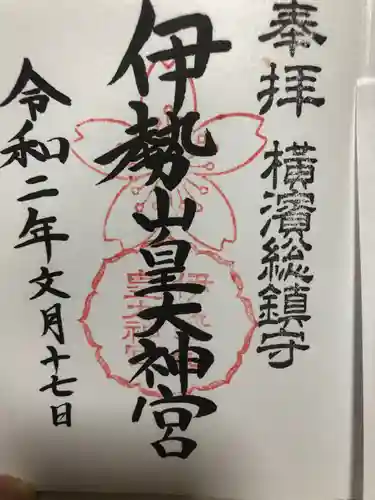 奉拝 横濱総鎮守
伊勢山皇大神宮
令和二年文月十七日